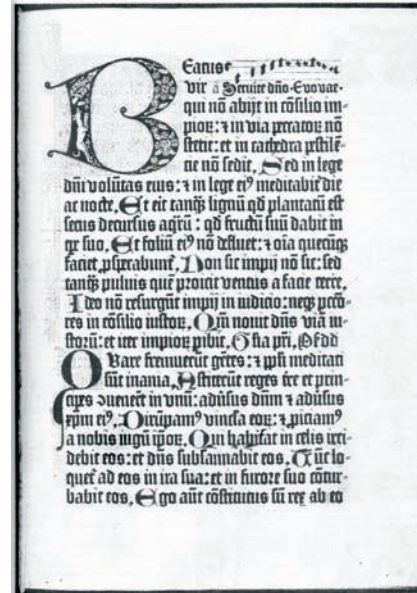 Beatus
vir a Servite dño. Evovae.
qui nõ abijt in cõsilio im-
pioꝝ: ⁊ in via peccatoꝝ nõ
stetit: et in cathedra pestilẽ-
tie nõ sedit. Sed in lege
dñi volũtas eius: ⁊ in lege ei⁹ meditabit̃ die
ac nocte. Et erit tanq̃ lignũ qd̃ plantatũ est
secus decursus aq̃rũ: qd̃ fructũ suũ dabit in
tp̃e suo. Et foliũ ei⁹ nõ defluet: ⁊ oĩa quecũq̃
faciet, ꝓsperabunt̃. Non sic impij nõ sic: sed
tanq̃ pulvis quẽ proicit ventus a facie terre.
Ideo nõ resurgũt impij in iudicio: neqꝫ pctõ-
res in cõsilio iustoꝝ. Qm̃ novit dñs viã iu-
storũ: et iter impioꝝ ꝑibit. Gl̃ia pr̃i.
Quare fremuerũt gẽtes: ⁊ pp̃li meditati
sũt inania. Astiterũt reges tr̃e et prin-
cipes ꝯvenerũt in vnũ: adṽsus dñm ⁊ adṽsus
xp̃m ei⁹. Dirũpam⁹ vincl̃a eoꝝ: ⁊ ꝓiciam⁹
a nobis iugũ ip̃oꝝ. Qui habitat in celis irri-
debit eos: et dñs subsannabit eos. Tũc lo-
quet̃ ad eos in ira sua: et in furore suo cõtur-
babit eos. Ego aũt cõstitutus sũ rex ab eo